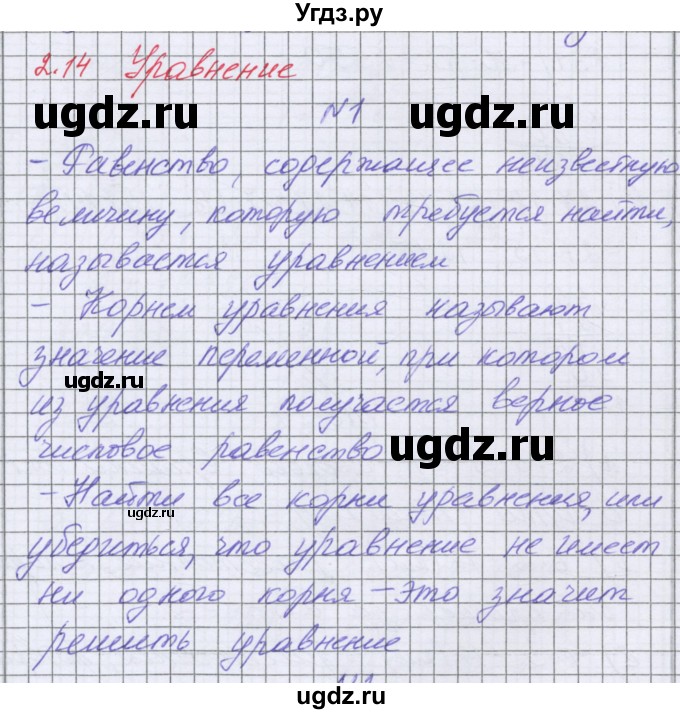 Угдз.ру
2.14 Уравнение
ugdz.ru ugdz.ru
№1
- Равенство, содержащее неизвестную
величину, которую требуется найти,
называется уравнением
- Корнем уравнения называют
значение переменной, при котором
ugdz.ru
из уравнения получается верное
числовое равенство
ugdz.ru
- Найти все корни уравнения, или
ugdz.ru
убедиться, что уравнение не имеет
ни одного корня - это значит
решить уравнение
ugdz.ru